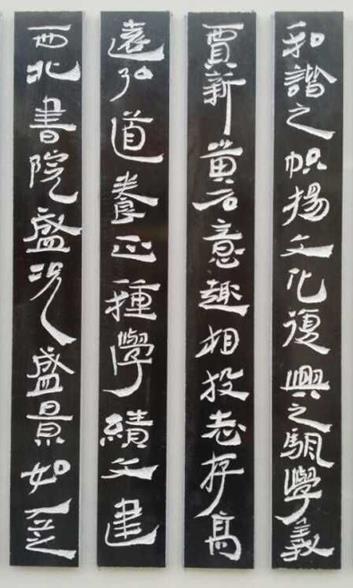 和諧之帜揚文化復興之颿學義
賈新黄石意趣相投志存高
遠弘道養正種學績文建
西北書院盛况盛景如立